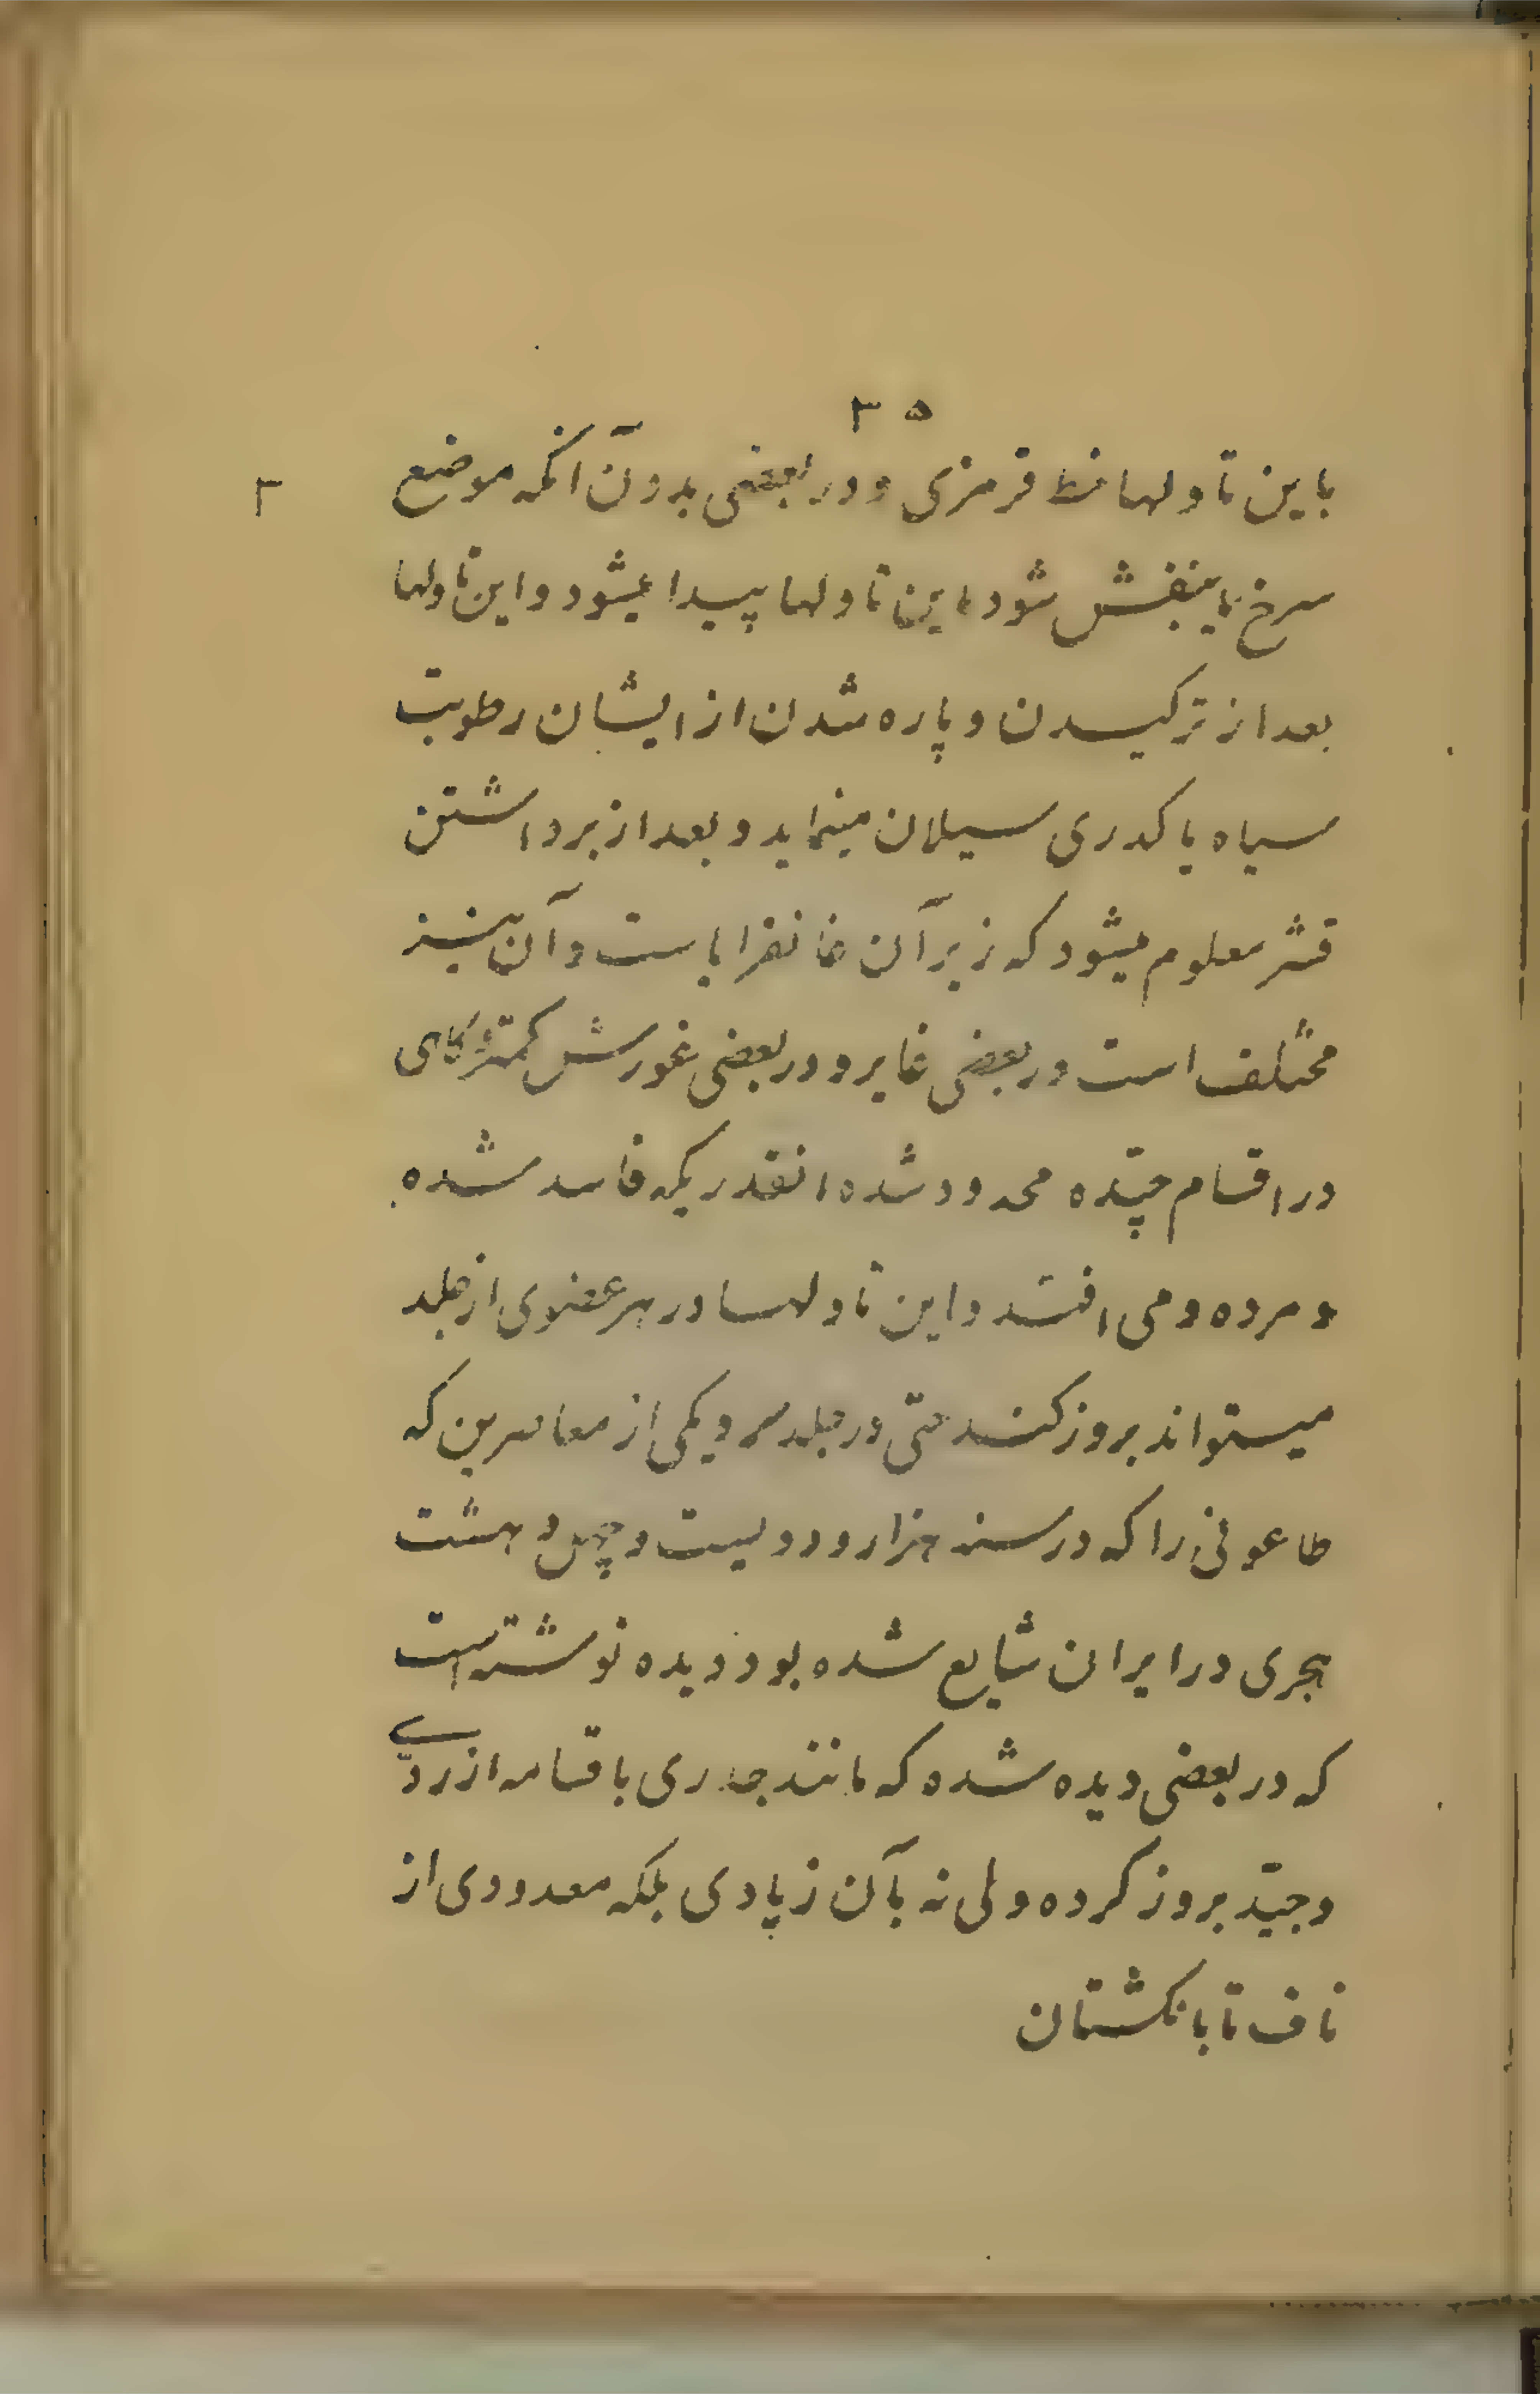 ۳۵
باین تاولها خط قرمزی و در بعضی بدون آنکه موضع
۳
سرخ یا بنفش شود این تاولها پیدا میشود و این تاولها
بعد از ترکیدن و پاره شدن از ایشان رطوبت
سیاه یا کدری سیلان مینماید و بعد از برداشتن
قشر معلوم میشود که زیر آن غانغرایاست و آن نیز
مختلف است در بعضی غایر و در بعضی غورش کمتر و گاهی
در اقسام جیّده محدود شده انقدریکه فاسد شده
و مرده و می افتد و این تاولها در هر عضوی از جلد
میتواند بروز کند حتّی در جلد سر و یکی از معاصرین که
طاعونی را که در سنه هزار و دویست و چهل و هشت
هجری در ایران شایع شده بود دیده نوشته است
که در بعضی دیده شده که مانند جدری باقسامه از ردّی
و جیّد بروز کرده ولی نه بآن زیادی بلکه معدودی از
ناف تا بانگشتان